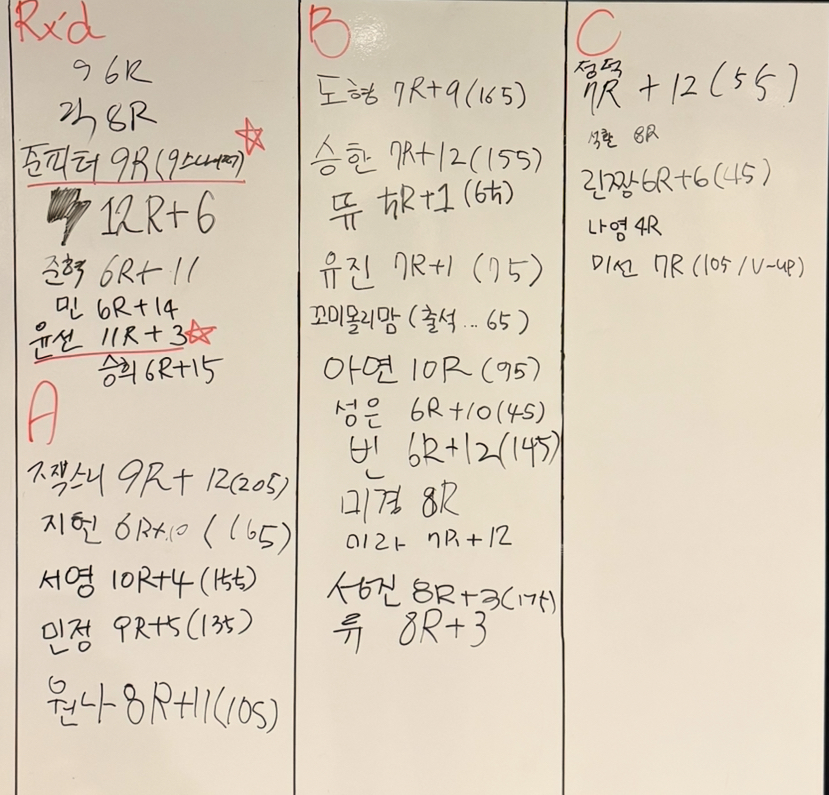 Rx'd
9 6R
각 8R
준피터 9R (9스나이퍼)
12R+6
준혁 6R+11
민 6R+14
윤선 11R+3
승희 6R+15
A
잭스니 9R+12(205)
지헌 6R+10 (165)
서영 10R+4(155)
민정 9R+5(135)
원나 8R+11(105)
B
도형 7R+9(165)
승한 7R+12(155)
뜌 5R+1 (65)
유진 7R+1 (75)
꼬미몰리맘 (출석...65)
아연 10R (95)
성은 6R+10(45)
빈 6R+12(145)
미경 8R
미라 7R+12
서진 8R+3(175)
류 8R+3
C
정덕
7R +12(55)
석환 8R
린짱 6R+6(45)
나영 4R
미선 7R (105/V-up)